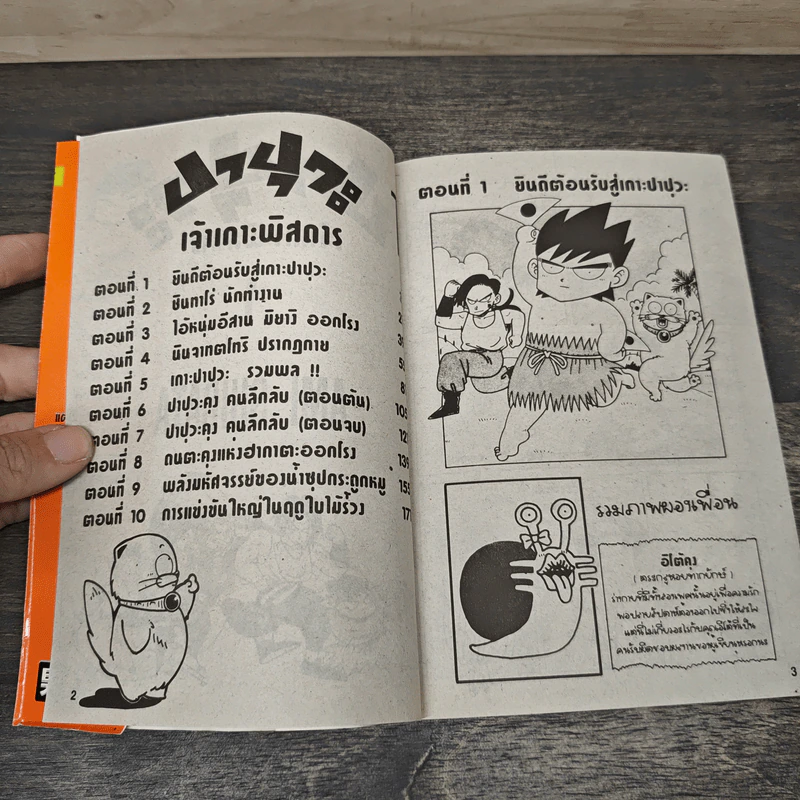 ปาปุวะ
เจ้าเกาะพิสดาร
ตอนที่ 1 ยินดีต้อนรับสู่เกาะปาปุวะ
ตอนที่ 2 ชินทาโร่ นักทำงาน
ตอนที่ 3 ไอ้หนุ่มอีสาน มิยางิ ออกโรง
ตอนที่ 4 นินจาทตโทริ ปรากฎกาย
ตอนที่ 5 เกาะปาปุวะ รวมพล !!
ตอนที่ 6 ปาปุวะคุง คนลึกลับ (ตอนต้น)
ตอนที่ 7 ปาปุวะคุง คนลึกลับ (ตอนจบ)
ตอนที่ 8 ดนตะคุงแห่งฮากาตะออกโรง 139
ตอนที่ 9 พลังมหัศจรรย์ของน้ำซุปกระดูกหมู 15
ตอนที่ 10 การแข่งขันใหญ่ในฤดูใบไม้ร่วง 17
2
ตอนที่ 1 ยินดีต้อนรับสู่เกาะปาปุวะ
รวมภาพผองเพื่อน
อิโต้คุง
(ตระกูลหอยทากยักษ์)
3